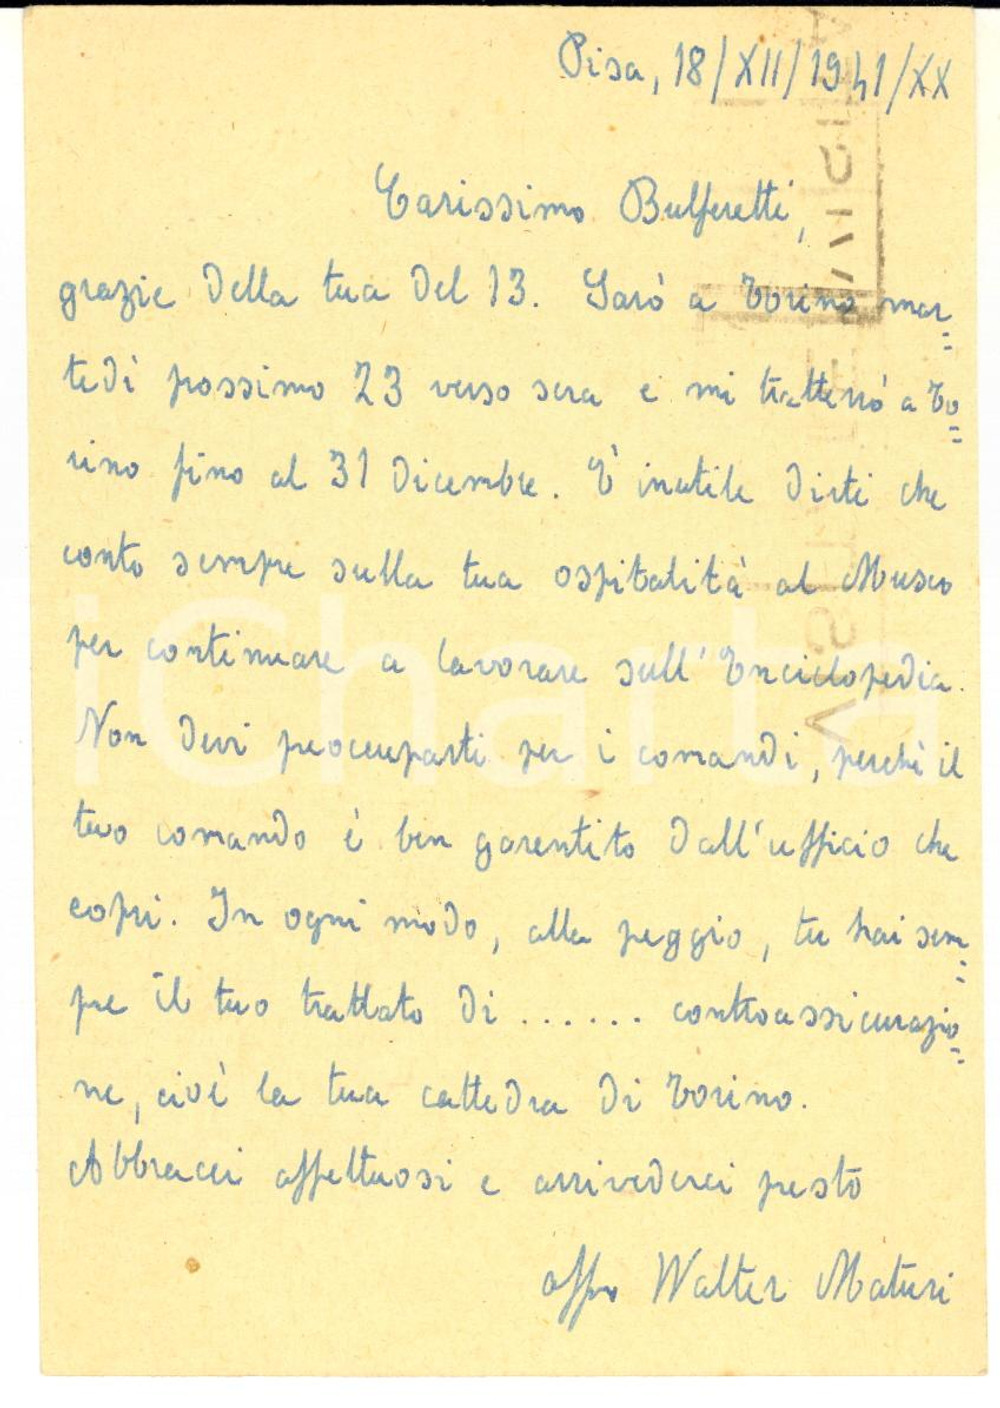 Pisa, 18/XII/1941/XX
Carissimo Bulferetti,
grazie della tua del 13. Sarò a Torino mar=
tedì possimo 23 verso sera e mi tratterrò a To=
rino fino al 31 Dicembre. È inutile dirti che
conto sempre sulla tua ospitalità al Museo
per continuare a lavorare sull'Enciclopedia.
Non devi preoccuparti per i comandi, perchè il
tuo comando è ben garentito dall'ufficio che
copri. In ogni modo, alla peggio, tu hai sem=
pre il tuo trattato di ...... controassicurazio=
ne, cioè la tua cattedra di Torino.
Abbracci affettuosi e arrivederci presto
affmo Walter Maturi
iCharta